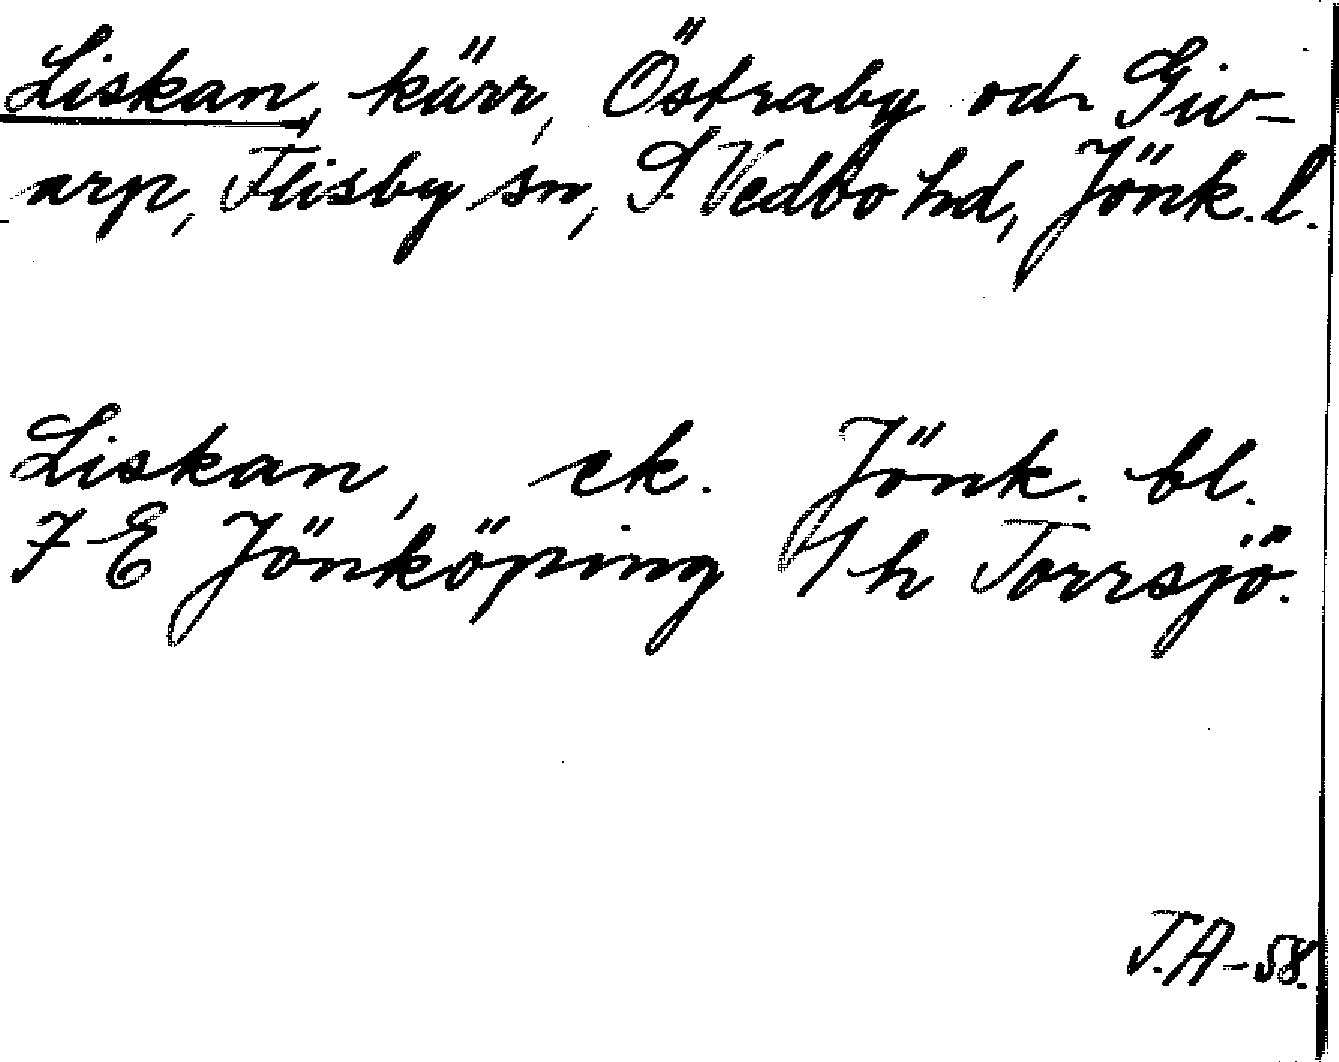 Liskan, kärr, Östraby och Siv-
arp, Flisby sn, S. Vedbo hd, Jönk. l.
Liskan, ek. Jönk. bl.
7 E Jönköping 1 h Torrsjö.
T.A-58.